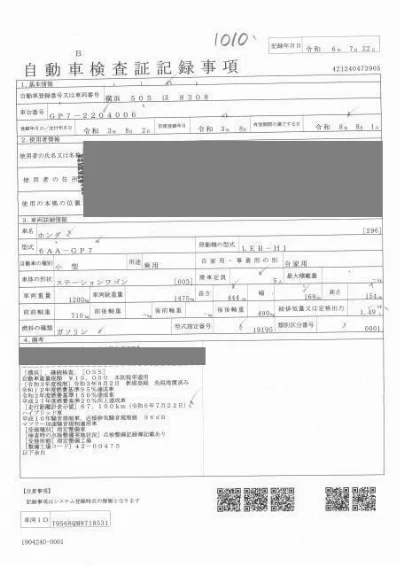 1010
B
記録年月日 令和 6年 7月22日
自動車検査証記録事項
421240473905
1.基本情報
自動車登録番号又は車両番号 横浜 505 ほ 8308
車台番号
GP7-2204006
登録年月日/交付年月日 令和 3年 8月 2日 初度登録年月 令和 3年 8月 有効期間の満了する日 令和 8年 8月 1日
2.使用者情報
使用者の氏名又は名称
使用者の住所
使用の本拠の位置
3.車両詳細情報
車名 ホンダ [296]
型式 6AA-GP7 原動機の型式 LEB-H1
自動車の種別 小型 用途 乗用 自家用・事業用の別 自家用
車体の形状 ステーションワゴン [003] 乗車定員 5人 最大積載量
車両重量 1200kg 車両総重量 1475kg 長さ 444cm 幅 169cm 高さ 154cm
前前軸重 710kg 前後軸重 後前軸重 後後軸重 490kg 総排気量又は定格出力 1.49
燃料の種類 ガソリン 型式指定番号 19195 類別区分番号 0001
4.備考
[横浜], 継続検査, [OSS]
自動車重量税額 ¥15,000 本則税率適用
令和12年度燃費基準95%達成車
[走行距離計表示値] 67,100km (令和6年7月22日)
ハイブリッド車
マフラー加速騒音規制適用車
[受検種別] 指定整備車
[検査時の点検整備実施状況] 点検整備記録簿記載あり
[受検形態] 指定整備工場
[整備工場コード] 42-00475
以下余白
[注意事項]
記録事項はシステム登録時点の情報となります
車両ID
1904240-0001